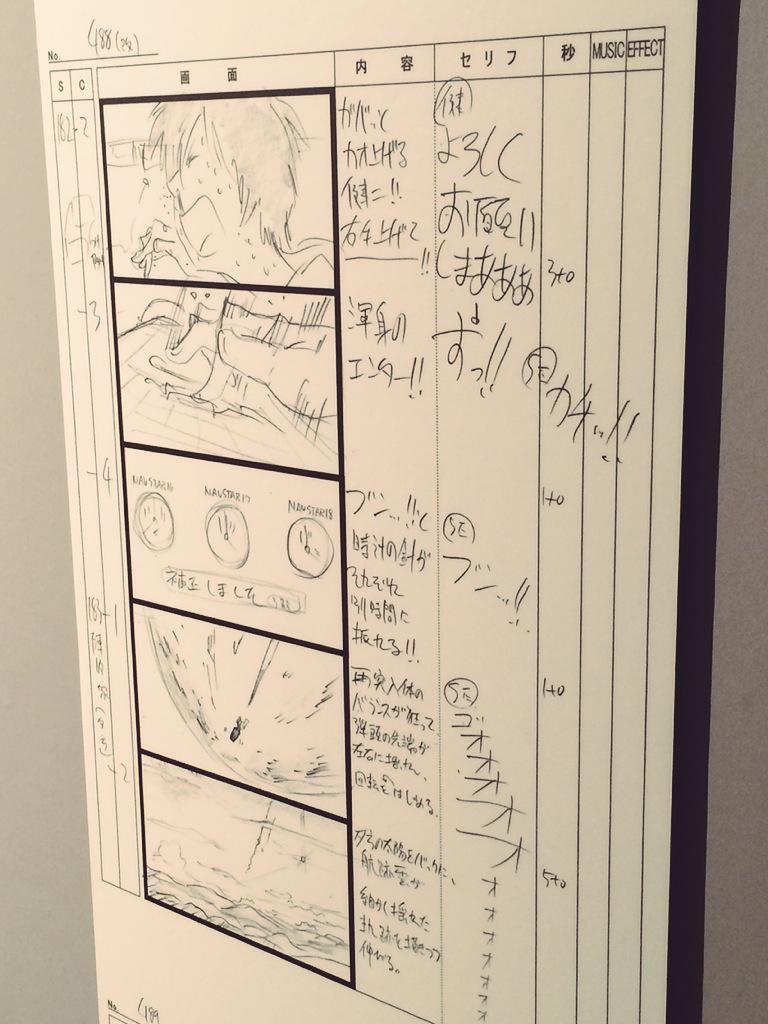 No. 488
S C 画面 内容 セリフ 秒 MUSIC EFFECT
182-2
がバっと
カオ上げる
健二!!
右手上げて
!!
健
よろしく
お願い
しまあああ
すっ!!
3+0
-3
渾身の
エンター!!
SE
カチッ!!
1+0
-4
NAUSTAR16
NAUSTAR17
NAUSTAR18
補正しました
ブン…!!と
時計の針が
それぞれ
別時間に
振れる!!
SE
ブン…!!
1+0
183-1
再突入体の
バランスが狂って、
弾頭の先端が
左右に揺れ、
回転をはじめる。
SE
ゴオオオオオオ
オオオオオオ
-2
夕方の太陽をバックに、
航跡雲が
細かく揺れた
軌跡を描きつつ
伸びる。
5+0
No. 489